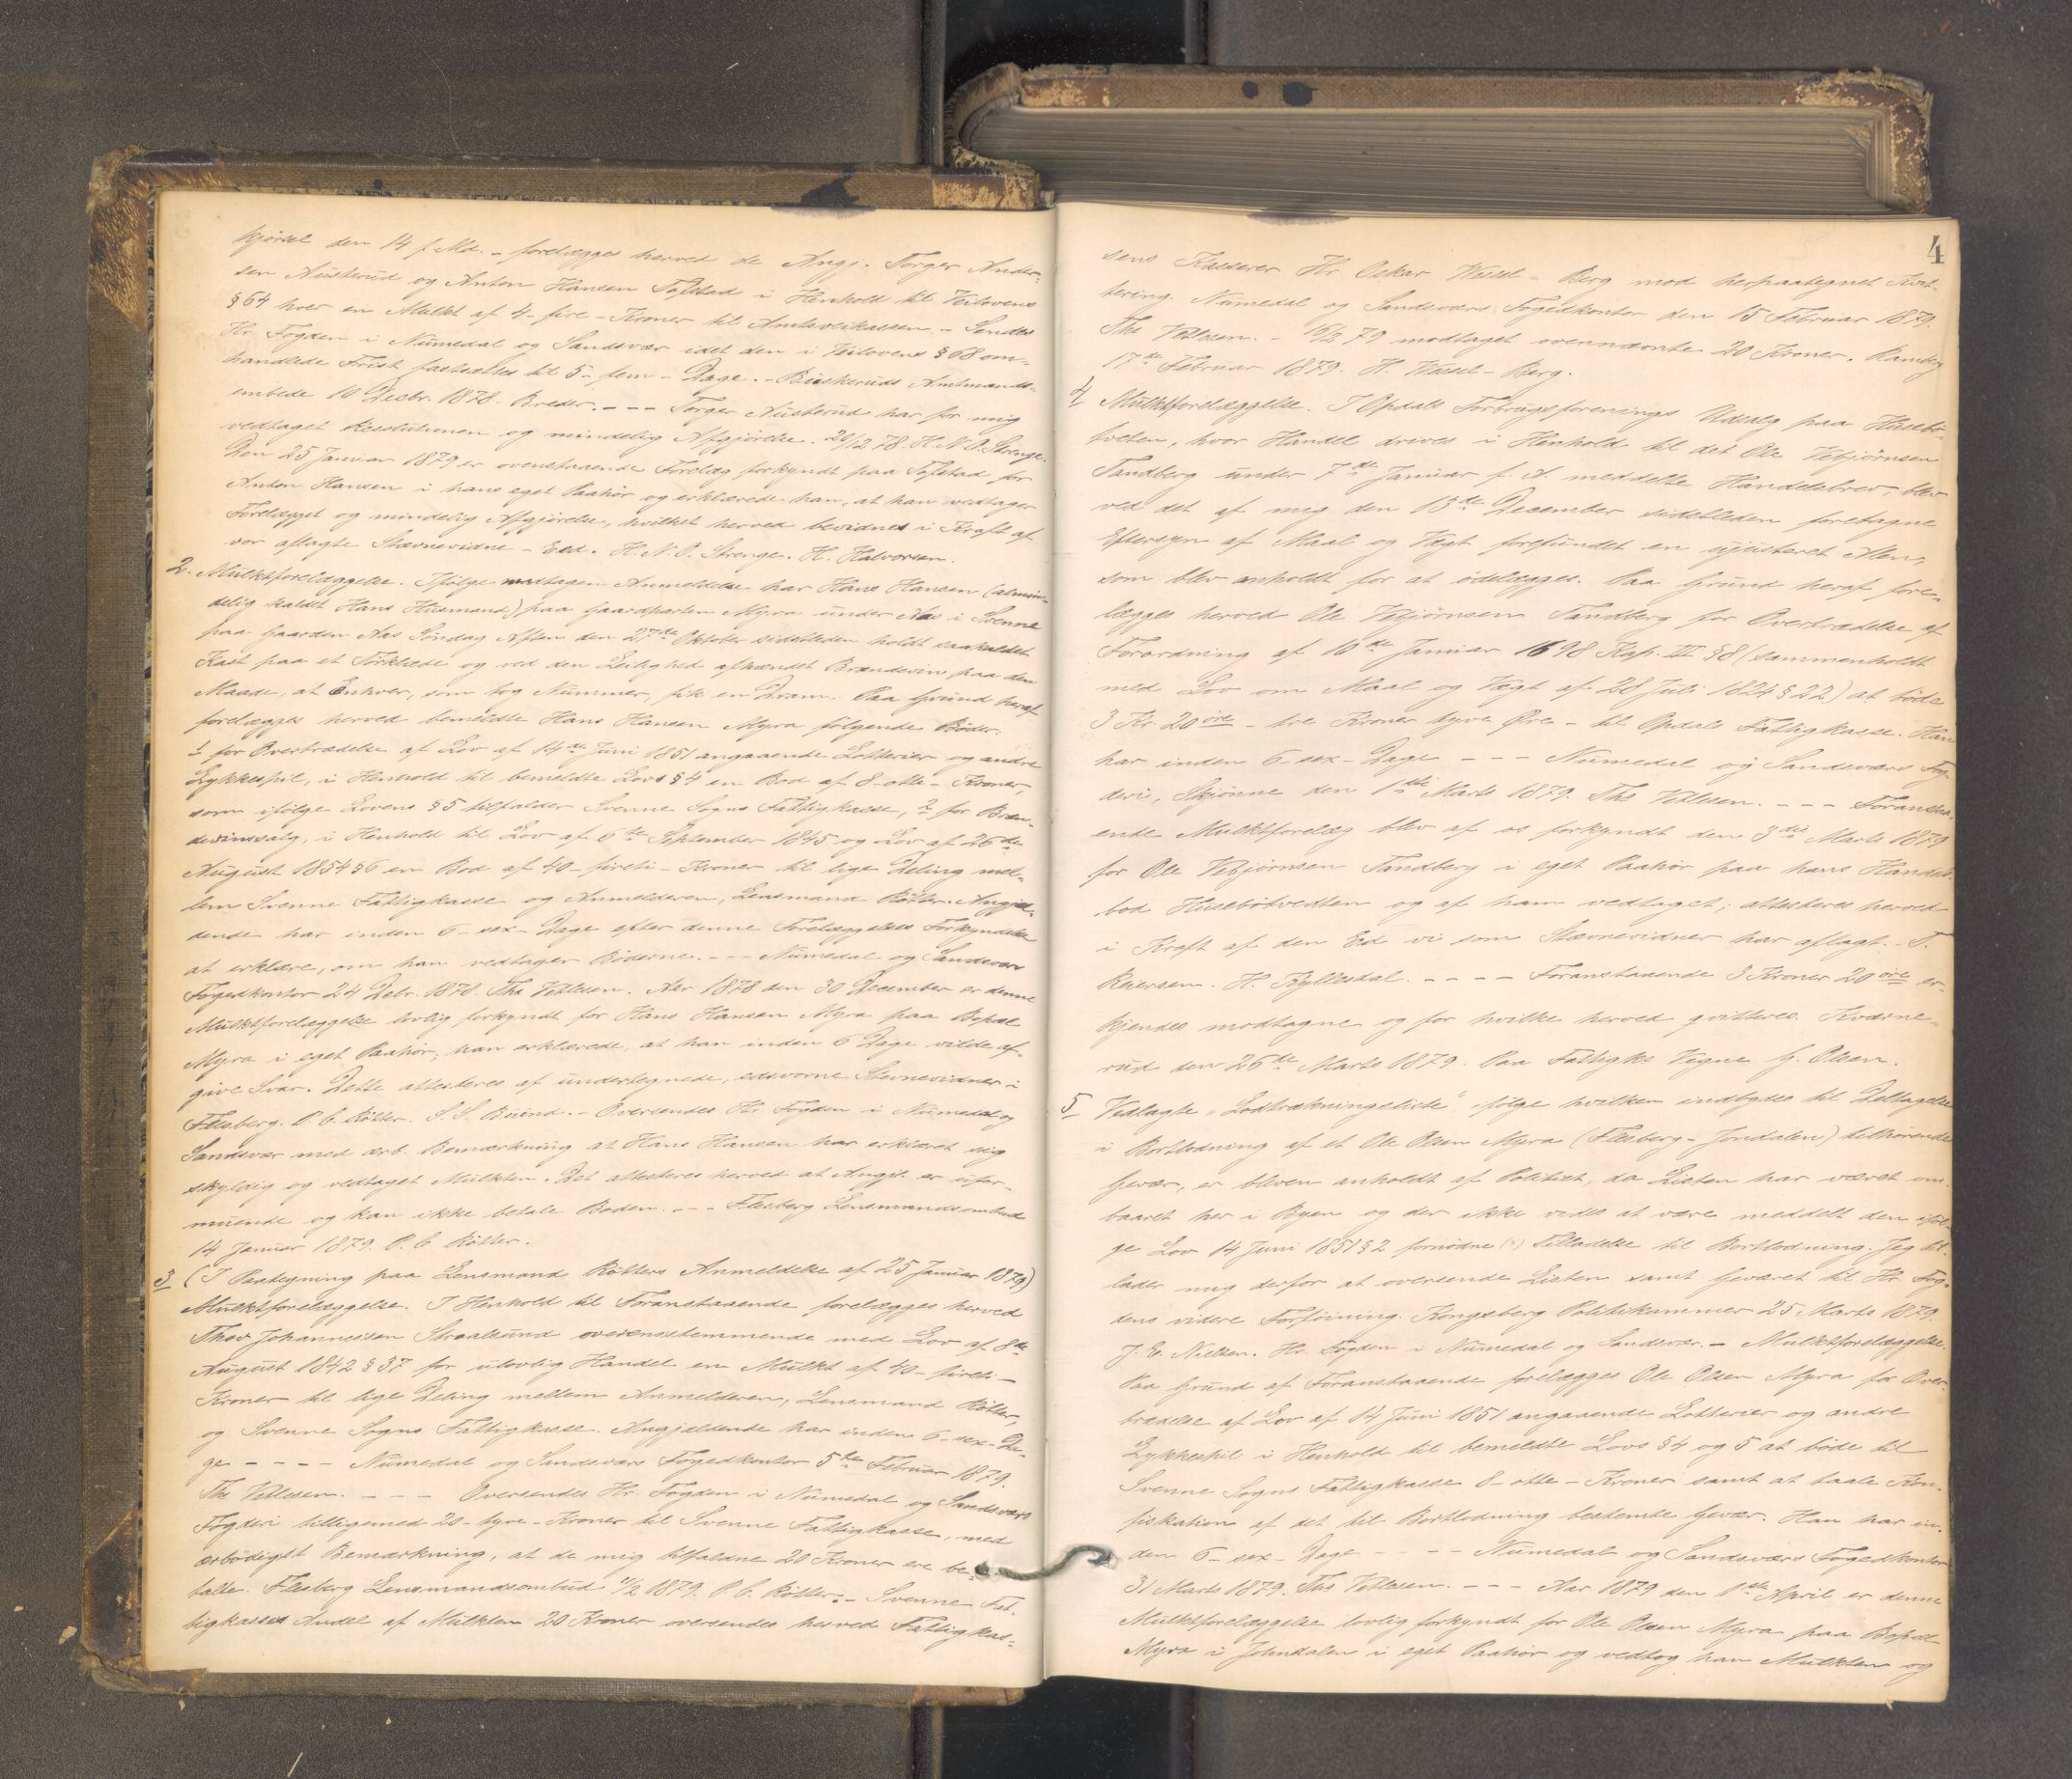 kjørsel den 14 f. Md. - forelægges herved de Angj. Torger Ander-
sen Austerud og Anton Hansen Tofstad i Henhold til Veilovens
§ 64 hver en Mulkt af 4 - fire - Kroner til Amtsveikassen. - Sendes
Hr. Fogden i Numedal og Sandsvær idet den i Veilovens § 68 om-
handlede Frist fastsættes til 5 - fem - Dage. - Buskeruds Amtmands-
embede 10 Decbr. 1878. Breder. - - - Torger Austerud har for mig
vedtaget Resolutionen og mindelig Afgjørelse. 20/12 78. H. N. O. Strenge.
Den 25 Januar 1879 er ovenstaaende Forelæg forkyndt paa Tofstad for
Anton Hansen i hans eget Paahør og erklærede han, at han vedtager
Forelægget og mindelig Afgjørelse, hvilket herved bevidnes i Kraft af
vor aflagte Stævnevidne - Eed. H. N. O. Strenge. H. Halvorsen.
2. Mulktforelæggelse. Ifølge modtagen Anmeldelse har Hans Hansen (almin-
delig kaldet Hans Husmand) paa Gaardparten Myra under Aas i Svenne
paa Gaarden Aas Søndag Aften den 27de Oktober sidstleden holdt saakaldet
Kast paa et Tørklæde og ved den Leilighed afhændet Brændevin paa den
Maade, at Enhver, som tog Nummer, fik en Dram. Paa Grund heraf
forelægges herved bemeldte Hans Hansen Myra følgende Bøder.
1 for Overtrædelse af Lov af 14de Juni 1851 angaaende Lotterier og andre
Lykkespil, i Henhold til bemeldte Lovs § 4 en Bod af 8 - otte - Kroner,
som ifølge Lovens § 5 tilfalder Svenne Sogns Fattigkasse, 2 for Bræn-
devinssalg, i Henhold til Lov af 6te September 1845 og Lov af 26de
August 1854 § 6 en Bod af 40 - firti - Kroner til lige Deling mel-
lem Svenne Fattigkasse og Anmelderen, Lensmand Købter. Angjæl-
dende har inden 6 - sex - Dage efter denne Forelæggelses Forkyndelse
at erklære, om han vedtager Bøderne. - - - Numedal og Sandsvær
Fogedkontor 24 Debr. 1878. Ths Vetlesen. Aar 1878 den 30 December er denne
Mulktforelæggelse lovlig forkyndt for Hans Hansen Myra paa Bopæl
Myra i eget Paahør; han erklærede, at han inden 6 Dage vilde af-
give Svar. Dette attesteres af undertegnede, edsvorne Stevnevidner i
Flesberg. P. C. Købter. S. S. Buind. - Oversendes Hr. Fogden i Numedal og
Sandsvær med ærb. Bemærkning at Hans Hansen har erklæret sig
skyldig og vedtaget Mulkten. Det attesteres herved at Angjt. er ufor-
muende og kan ikke betale Boden. - - - Flesberg Lensmandsombud
14 Januar 1879. P. C. Købter.
3 (I Paategning paa Lensmand Købters Anmeldelse af 25 Januar 1879)
Mulktforelæggelse. I Henhold til Foranstaaende forelægges herved
Thov Johannessen Straalsund overensstemmende med Lov af 8de
August 1842 § 37 for ulovlig Handel en Mulkt af 40 - firti -
Kroner til lige Deling mellem Anmelderen, Lensmand Købter,
og Svenne Sogns Fattigkasse. Angjældende har inden 6 - sex - Da-
ge - - - - Numedal og Sandsværs Fogedkontor 5te Februar 1879.
Ths Vetlesen. - - - Oversendes Hr. Fogden i Numedal og Sandsværs
Fogderi tilligemed 20 - tyve - Kroner til Svenne Fattigkasse, med
ærbødigst Bemærkning, at de mig tilfaldne 20 Kroner ere be-
talte. Flesberg Lensmandsombud /2 1879. P. C. Købter. - Svenne Fat-
tigkasses Andel af Mulkten 20 Kroner oversendes herved Fattigkas-
4
sens Kasserer Hr. Oskar Wessel - Berg mod herpaategnet Kvit-
tering. Numedal og Sandsværs Fogedkontor den 15 Februar 1879.
Ths Vetlesen. - 16/2 79 modtaget ovennævnte 20 Kroner. Ramberg
17de Februar 1879. H. Wessel - Berg.
4 Mulktforelæggelse. I Opdals Forbrugsforenings Udsalg paa Husebø-
tveten, hvor Handel drives i Henhold til det Ole Vebjørnsen
Tandberg under 7de Januar f. A. meddelte Handelsbrev, blev
ved det af mig den 18de December sidstleden foretagne
Eftersyn af Maal og Vægt forefundet en ujusteret Alen,
som blev anholdt for at ødelægges. Paa Grund heraf fore-
lægges herved Ole Vebjørnsen Tandberg for Overtrædelse af
Forordning af 10de Januar 1698 Kap. III § 8 (sammenholdt
med Lov om Maal og Vægt af 28 Juli 1824 § 22) at bøde
3 Kr. 20 øre - tre Kroner tyve Øre - til Opdals Fattigkasse. Han
har inden 6 - sex - Dage - - - Numedal og Sandsværs Fog-
deri, Skjønne den 1ste Marts 1879. Ths Vetlesen. - - - Foranstaa-
ende Mulktforelæg blev af os forkyndt den 3die Marts 1879
for Ole Vebjørnsen Tandberg i eget Paahør paa hans Handels-
bod Husebøtvedten og af ham vedtaget; attesteres herved
i Kraft af den Ed vi som Stævnevidner har aflagt. T.
Reiersen. H. Kyllesdal. - - - - Foranstaaende 3 Kroner 20 øre er-
kjendes modtagne og for hvilke herved qvitteres. Kværne-
rud den 26de Marts 1879. Paa Fattigks Vegne G. Olsen.
5 Vedlagte "Lodtrækningsliste", ifølge hvilken indbydes til Deltagelse
i Bortlodning af et Ole Olsen Myra (Flesberg - Jondalen) tilhørende
Gevær, er bleven anholdt af Politiet, da Listen har været om-
baaret her i Byen og der ikke vides at være meddelt den iføl-
ge Lov 14 Juni 1851 § 2 fornødne (?) Tilladelse til Bortlodning. Jeg til-
lader mig derfor at oversende Listen samt Geværet til Hr. Fog-
dens videre Forføining. Kongsberg Politikammer 25 Marts 1879.
J. E. Nielsen. Hr. Fogden i Numedal og Sandsvær. - Mulktforelæggelse.
Paa Grund af Foranstaaende forelægges Ole Olsen Myra for Over-
trædelse af Lov af 14 Juni 1851 angaaende Lotterier og andre
Lykkespil i Henhold til bemeldte Lovs § 4 og 5 at bøde til
Svenne Sogns Fattigkasse 8 - otte - Kroner samt at taale Kon-
fiskation af det til Bortlodning bestemte Gevær. Han har in-
den 6 - sex - Dage - - - - Numedal og Sandsværs Fogedkontor
31 Marts 1879. Ths Vetlesen. - - - Aar 1879 den 1ste April er denne
Mulktforelæggelse lovlig forkyndt for Ole Olsen Myra paa Bopæl
Myra i Johndalen i eget Paahør og vedtog han Mulkten og